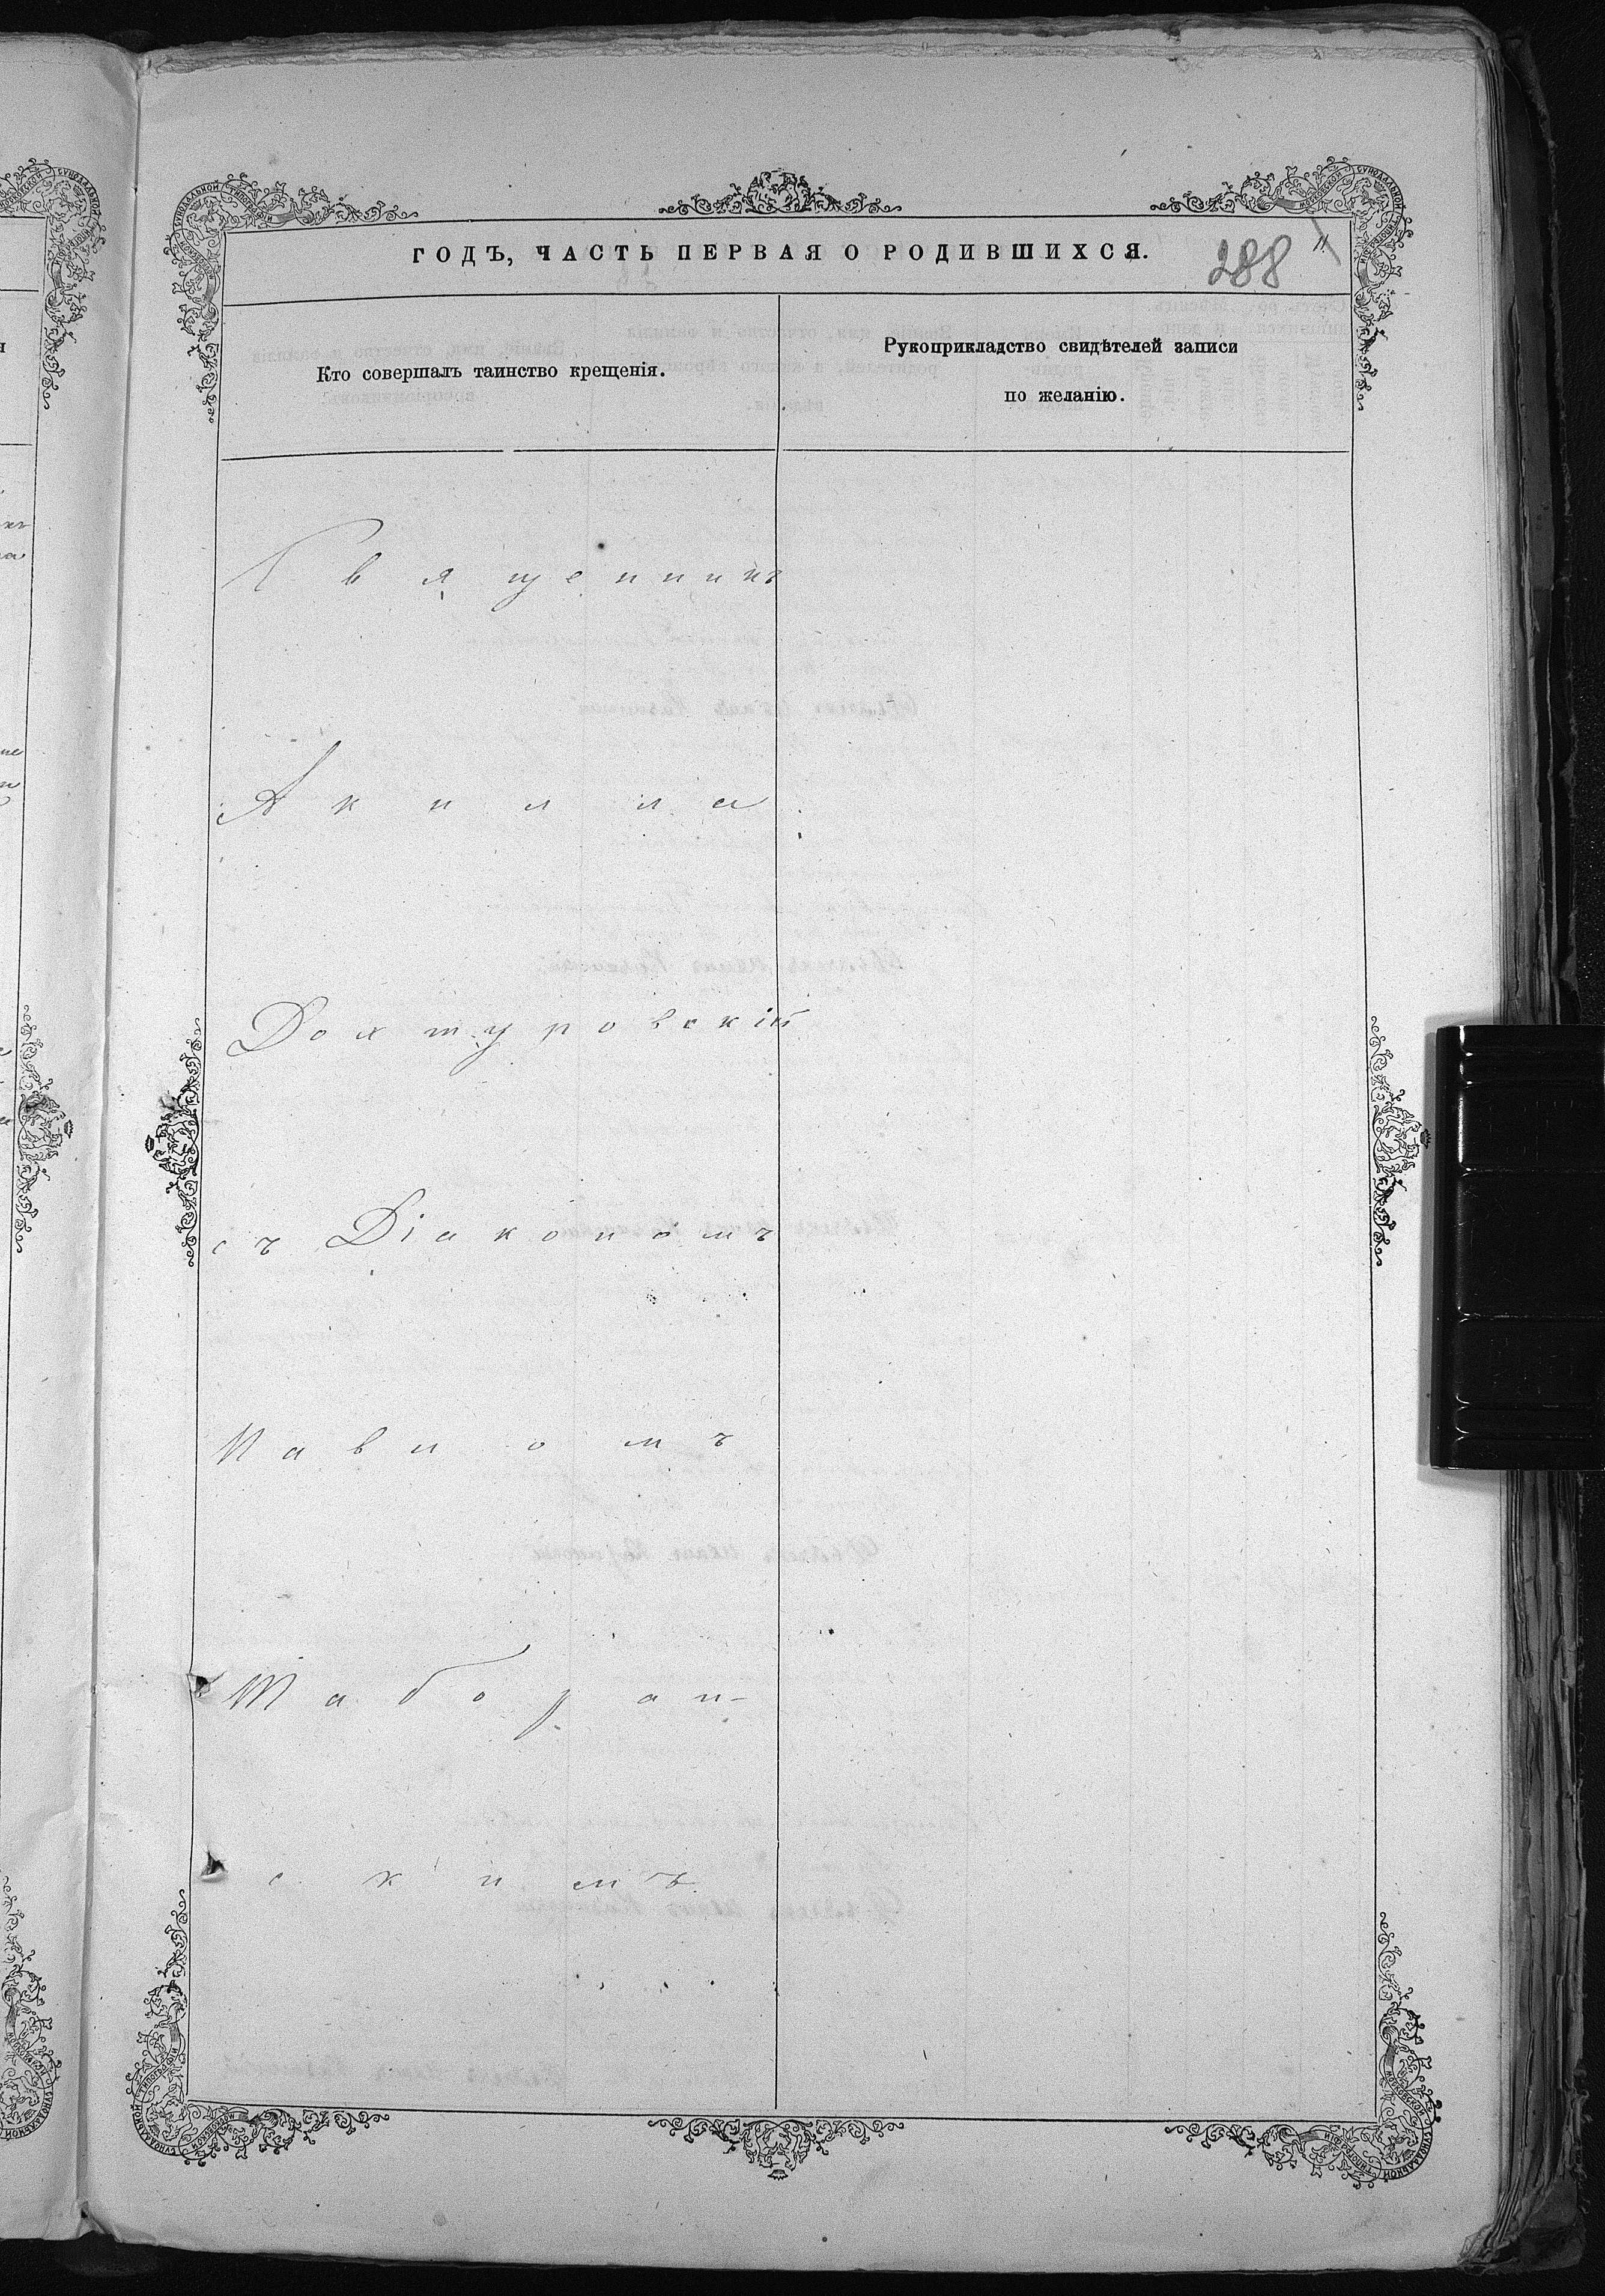 ГОДЪ, ЧАСТЬ ПЕРВАЯ О РОДИВШИХСЯ.
288
Кто совершалъ таинство крещенія.
Рукоприкладство свидѣтелей записи
по желанію.
Священникъ
Акилла
Дохтуровскій
съ Діакономъ
Павломъ
Таборан-
скимъ.